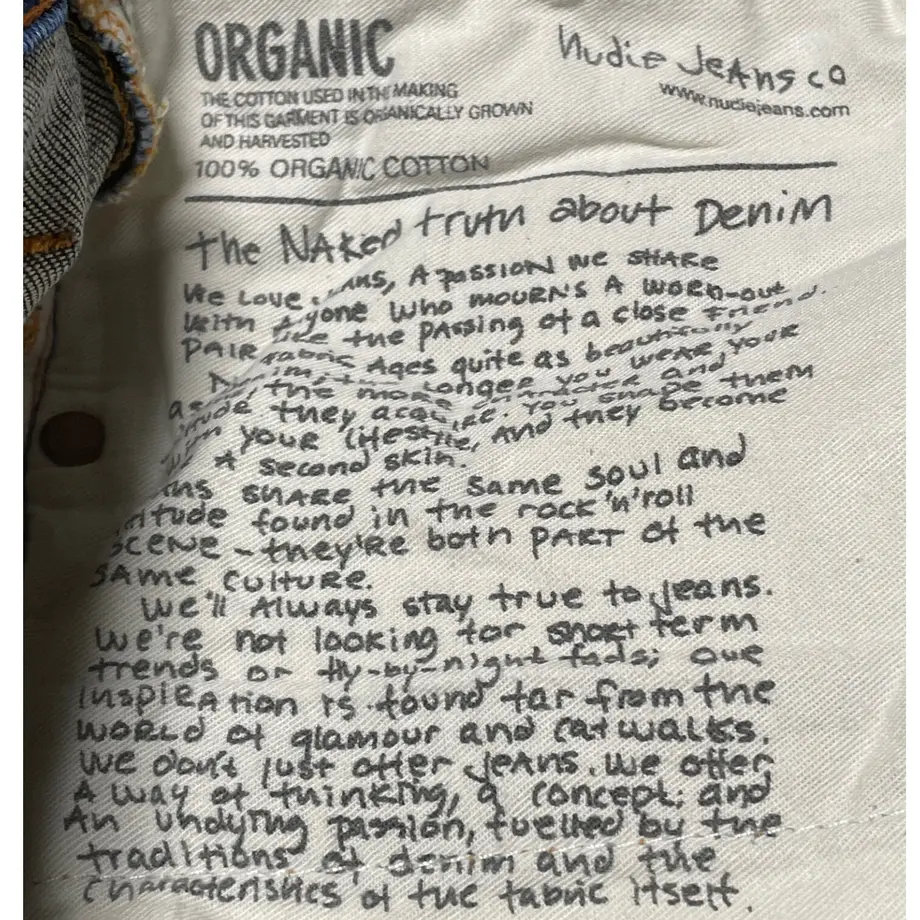 ORGANIC
THE COTTON USED IN THE MAKING
OF THIS GARMENT IS ORGANICALLY GROWN
AND HARVESTED
100% ORGANIC COTTON
Nudie Jeans co
www.nudiejeans.com
the Naked truth about Denim
We Love ans, A passion we share
with A yone who mourns A worn-out
pair like the passing of a close friend.
fabric Ages quite as beautifully
as the more longer you wear your
character and
tude they acquire. You shape them
your lifestyle, and they become
A second skin.
ans share the same soul and
titude found in the rock'n'roll
scene - they're both part of the
same culture.
we'll Always stay true to jeans.
we're not looking for short term
trends or fly-by-night fads; our
inspiration is found far from the
world of glamour and catwalks.
we don't just offer jeans. we offer
A way of thinking, a concept; and
An undying passion, fuelled by the
traditions of denim and the
characteristics of the fabric itself.